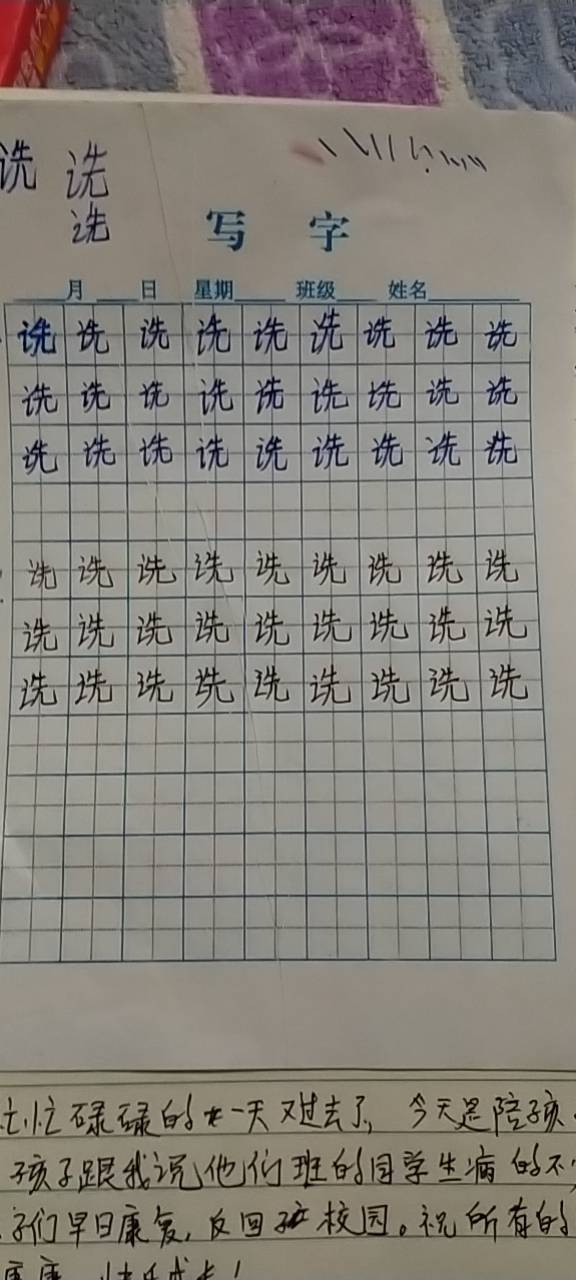 诜 诜
诜
写 字
月 日 星期 班级 姓名
诜 诜 诜 诜 诜 诜 诜 诜 诜
诜 诜 诜 诜 诜 诜 诜 诜 诜
诜 诜 诜 诜 诜 诜 诜 诜 诜
诜 诜 诜 诜 诜 诜 诜 诜 诜
诜 诜 诜 诜 诜 诜 诜 诜 诜
诜 诜 诜 诜 诜 诜 诜 诜 诜
忙忙碌碌的一天又过去了,今天是陪孩
孩子跟我说他们班的同学生病的不
子们早日康复,反回校园。祝所有的